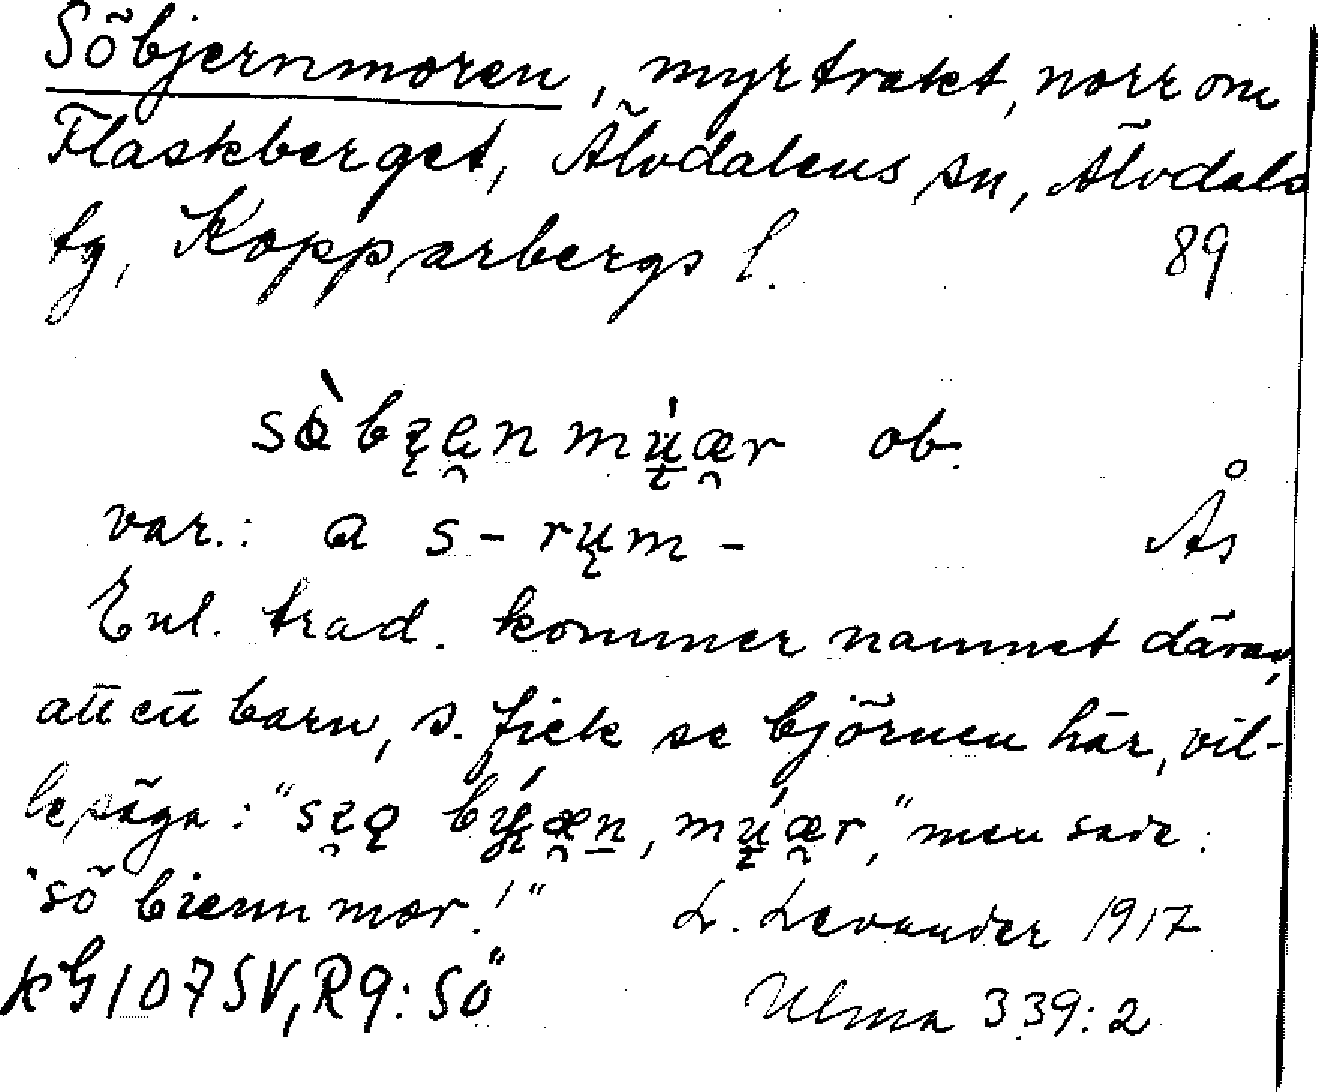 Söbjernmoren, myrtrakt, norr om
Flaskberget, Älvdalens sn, Älvdals
tg, Kopparbergs l. 89
ob.
var.: a s - rųm - Ås
Enl. trad. kommer namnet därav,
att ett barn, s. fick se björnen här, vil-
le säga: " men sade:
"sö biennmor!" L. Levander 1917
KG 107 SV, R9: Sö Ulma 339:2